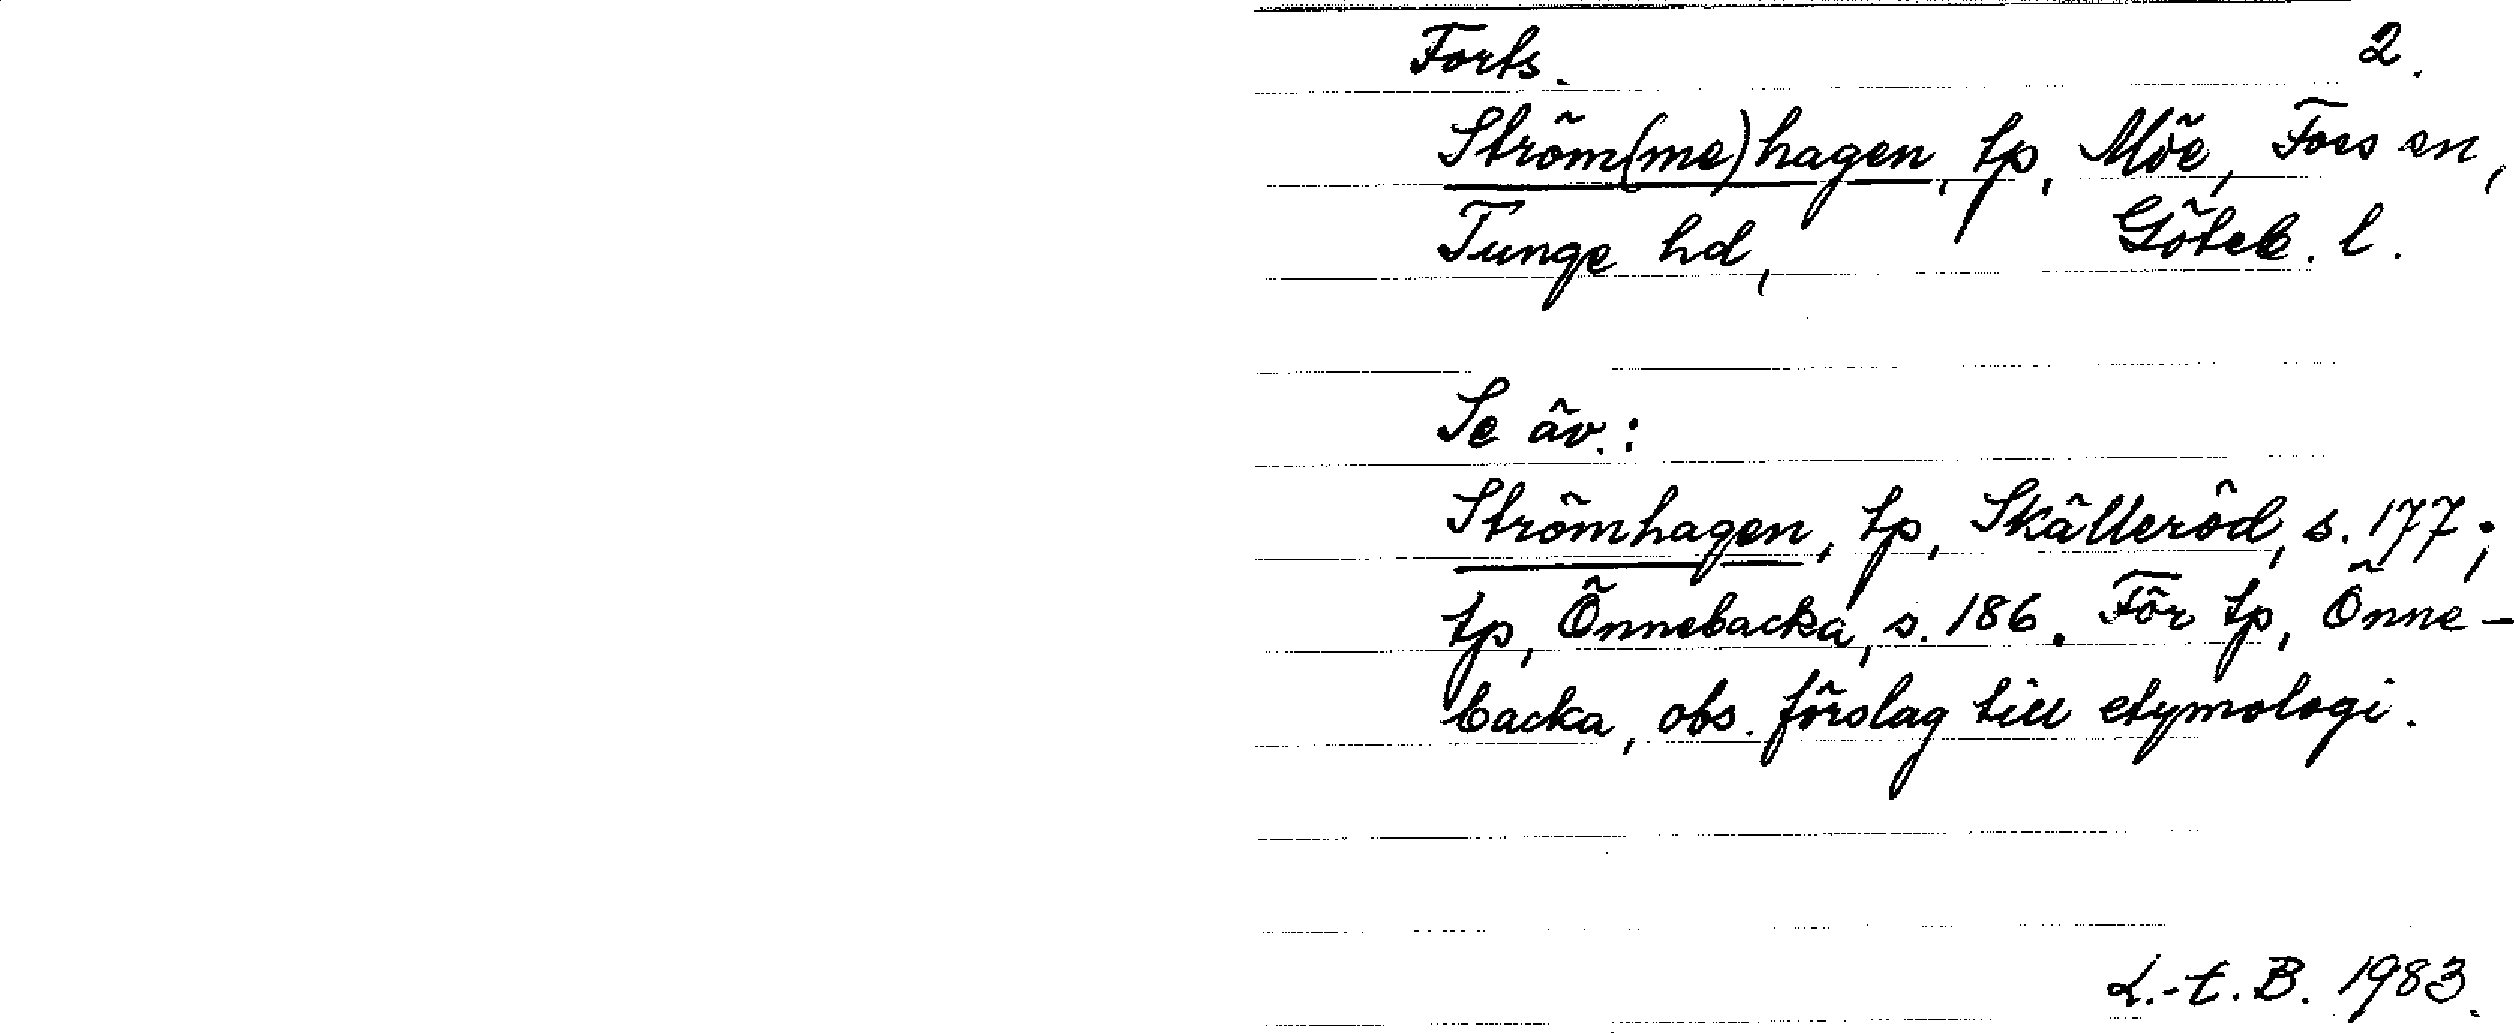 Forts. 2.
Ström(me)hagen, tp, Möe, Foss sn,
Tunge hd, Göteb. l.
Se äv.:
Strömhagen, tp, Skälleröd, s. 177;
tp, Önnebacka, s. 186. För tp, Önne-
backa, obs. förslag till etymologi.
L.-E. B. 1983.